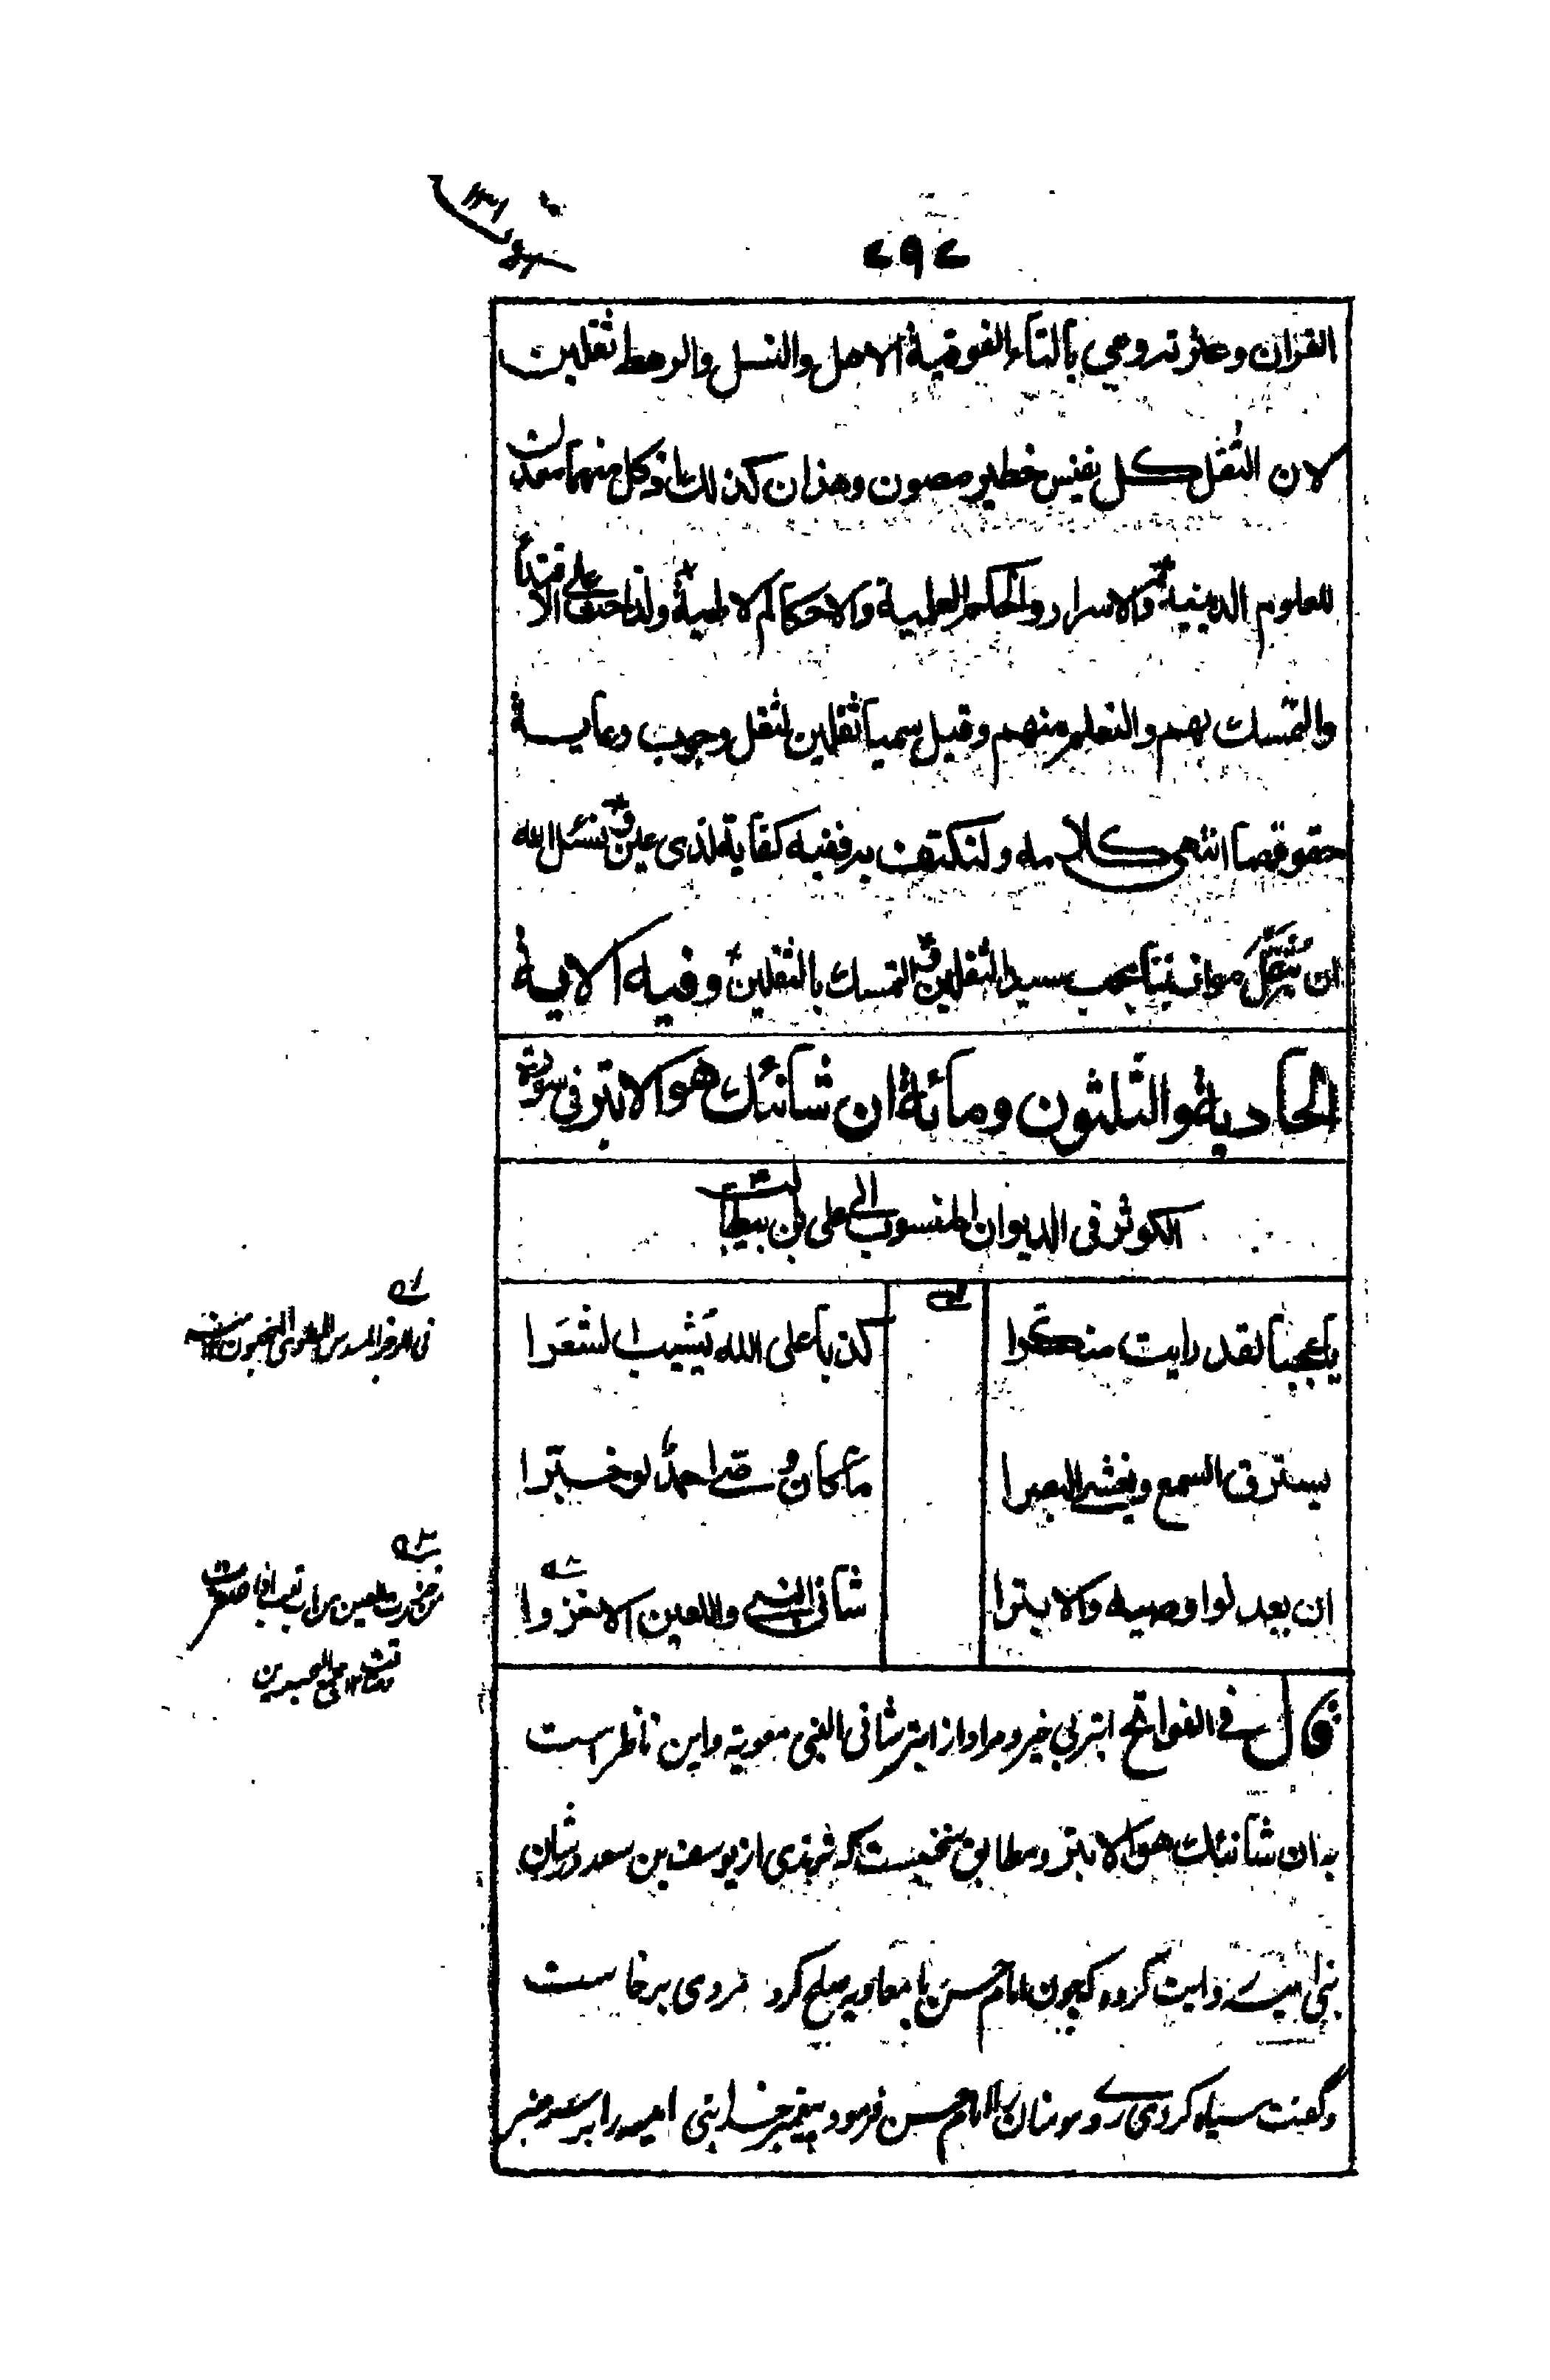 ٧٩٧
القران وعترته وهي بالتاء الفوقية الاهل والنسل والرهط ثقلين
لان الثقل كل نفيس خطير مصون وهذان كذلك اذ كل منهما معدن
للعلوم الدينية والاسرار والحكم العلية والاحكام ولذا حث على الاقتداء
والتمسك بهم والتعلم منهم وقيل سميا ثقلين لثقل وجوب رعاية
حقوقهما انتهى كلامه ولنكتف به ففيه كفاية لذى عين نسئل الله
ان يثقل موازيننا بحب سيد الثقلين والتمسك بالثقلين وفيه الاية
الحادية والثلثون ومائة ان شانئك هو الابتر في سورة
الكوثر في الديوان المنسوب الى علي بن
يا عجبا لقد رايت منكرا كذبا على الله يشيب الشعرا
يسترق السمع ويغشى البصرا ما كان يرضى احمد لو خبرا
ان يعدلوا وصيه والابترا شاني النبي واللعين الاخزرا
قال في الفواتح ابتر بي خير ومراد از ابتر شاني النبي معويه واين ناظر است
به ان شانئك هو الابتر ومطابق سخنيست كه ترمذى از يوسف بن سعد در شان
بنى اميه روايت كرده كه چون امام حسن با معاويه صلح كرد مردى برخاست
وگفت سياه كردى روى مومنان را امام حسن فرمود پيغمبر خدا بنى اميه را بر منبر